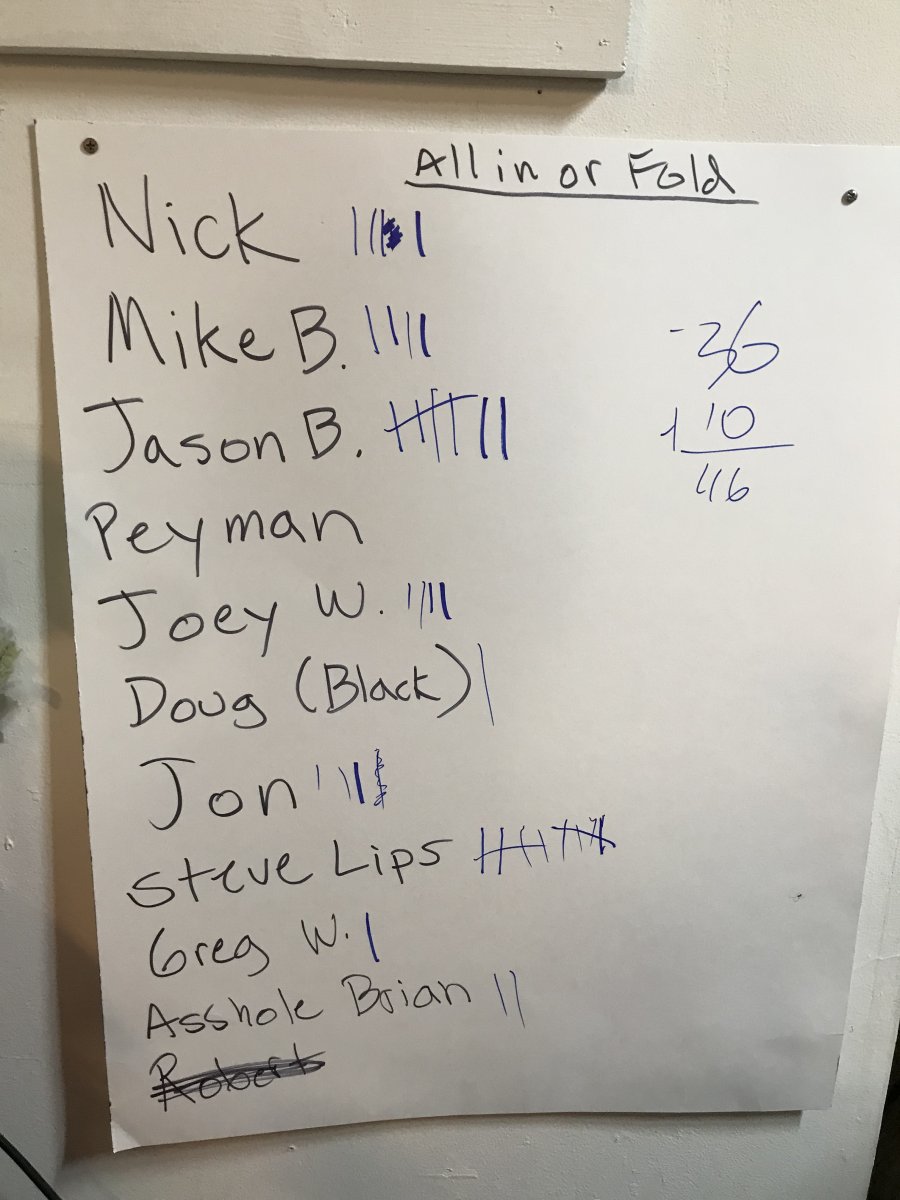 All in or Fold
Nick
Mike B.
Jason B.
Peyman
Joey W.
Doug (Black)
Jon
Steve Lips
Greg W.
Asshole Brian
Robert
-36
+10
46